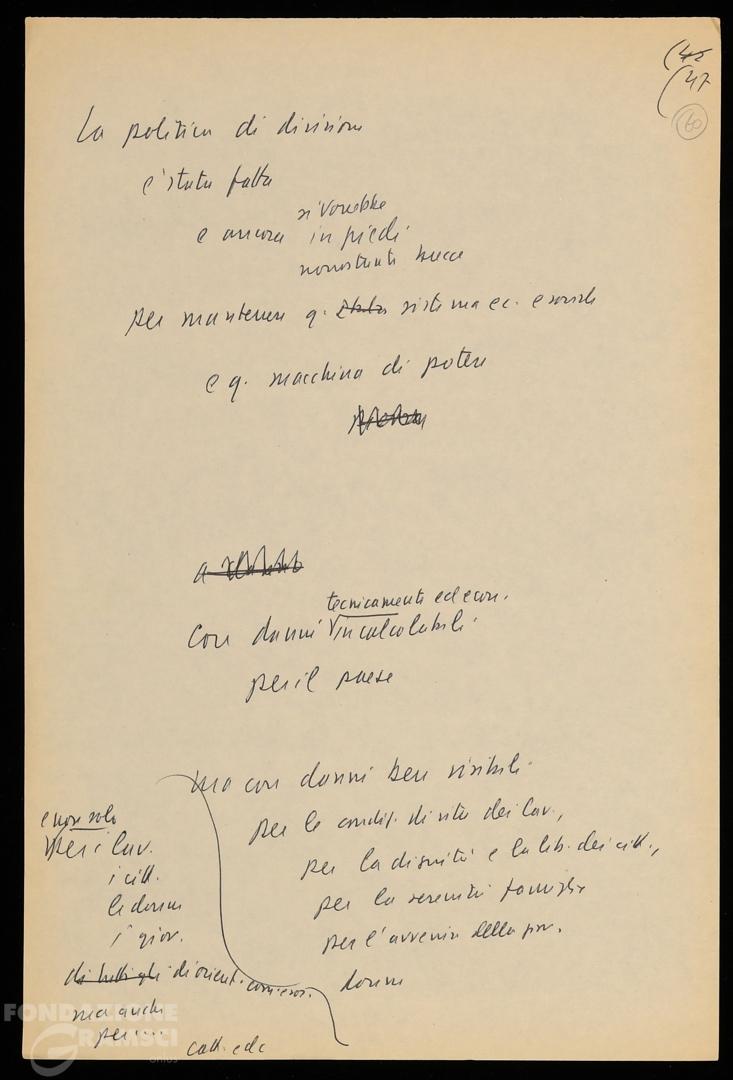 (42
(47
60
La politica di divisione
è stata fatta
si vorrebbe
e ancora in piedi
nonostante brecce
per mantenere q. Stato sistema ec. e sociale
e q. macchina di potere
a
tecnicamente ed econ.
con danni incalcolabili
per il paese
ma con danni ben visibili
per le condiz. di vita dei lav.,
per la dignità e la lib. dei citt.,
per la serenità famiglie
per l'avvenire della giov.
donne
e non solo
per i lav.
i citt.
le donne
i giov.
di tutti gli di orient.
ma anche
per ....
catt. e dc
FONDAZIONE
GRAMSCI
onlus